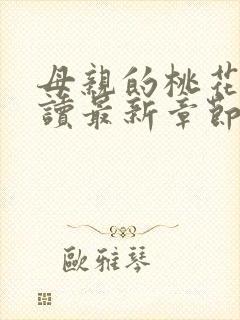 母親的桃花
讀最新章節
歐雅琴